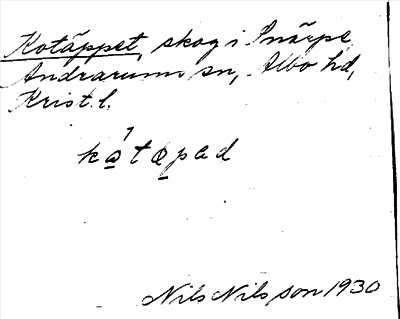 Kotäppet, skog i Snärpe,
Andrarums sn, Albo hd,
Krist. l.
ko̲´tǫpad
Nils Nilsson 1930